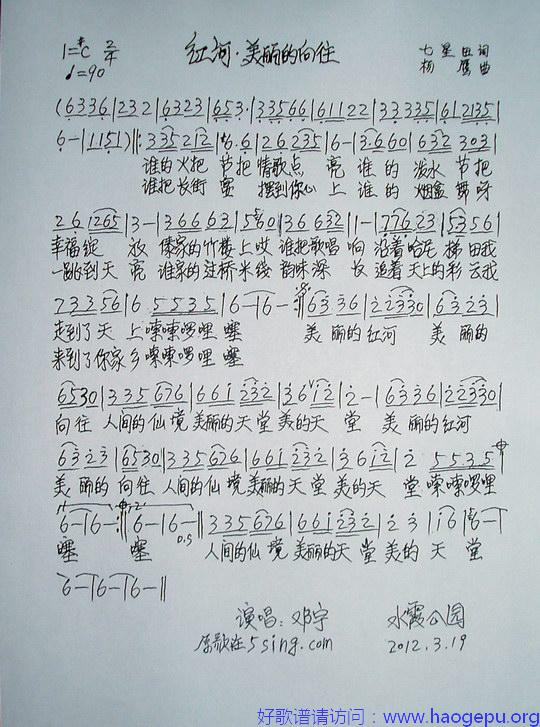 1=#C 2/4
红河·美丽的向往
七星田 词
♩=90
杨鹰 曲
(6336|232|6323|653·|33566|61122|333335|612135|
6-|1151)‖:33521 2|6·6|26235|6-|36660|632 303|
谁的火把 节把情歌点 亮 谁的 泼水 节把
谁把长街 宴 摆到你心 上 谁的 烟盒 舞呀
26 1265|3-|36663|5 60|36 632|1-|77623|5356|
幸福绽 放 傣家的竹楼上哎 谁把歌唱 响 沿着哈尼 梯田我
一跳到天 亮 谁家的过桥米线 韵味深 长 追着天上的彩 云我
723356|6 5535|6-|6-:‖6336|22330|6323|
走到了天 上嗦嗦啰哩 噻 美 丽的红河 美 丽的
来到了你家 乡嗦嗦啰哩 噻
6530|335676|661 232|3612|2-|6336|22330|
向往 人间的仙 境 美丽的天 堂 美的天 堂 美 丽的红河
6323|6530|335676|661232|3612|2 5535|
美 丽的 向往 人间的仙 境美丽的天 堂 美的天 堂嗦嗦啰哩
6-|6-:‖6-|6-‖335676|661232|23|16|6-|
D.S
噻 噻 人间的仙 境 美丽的天 堂 美的 天 堂
6-|6-|6-‖
演唱：邓宇 水霞公园
原歌在5sing.com 2012.3.19
好歌谱请访问：www.haogepu.org